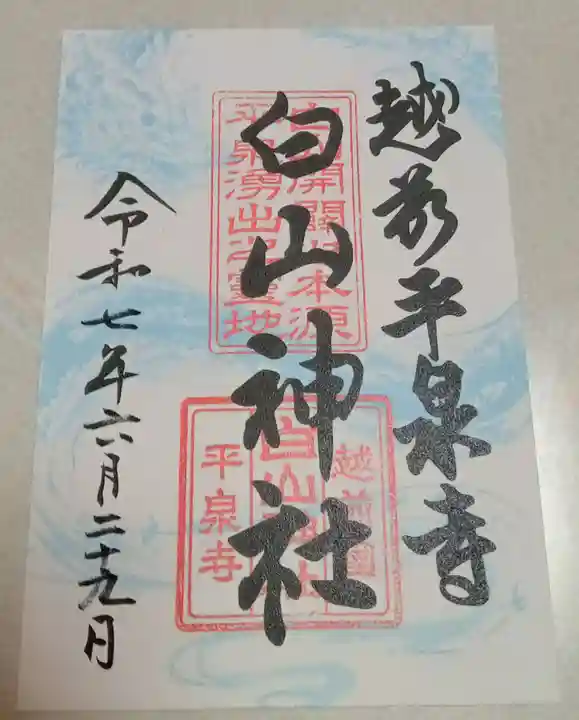 越前平泉寺
白山神社
白山開闢之本源
平泉湧出之霊地
越前國
白山神社
平泉寺
令和七年六月二十九日